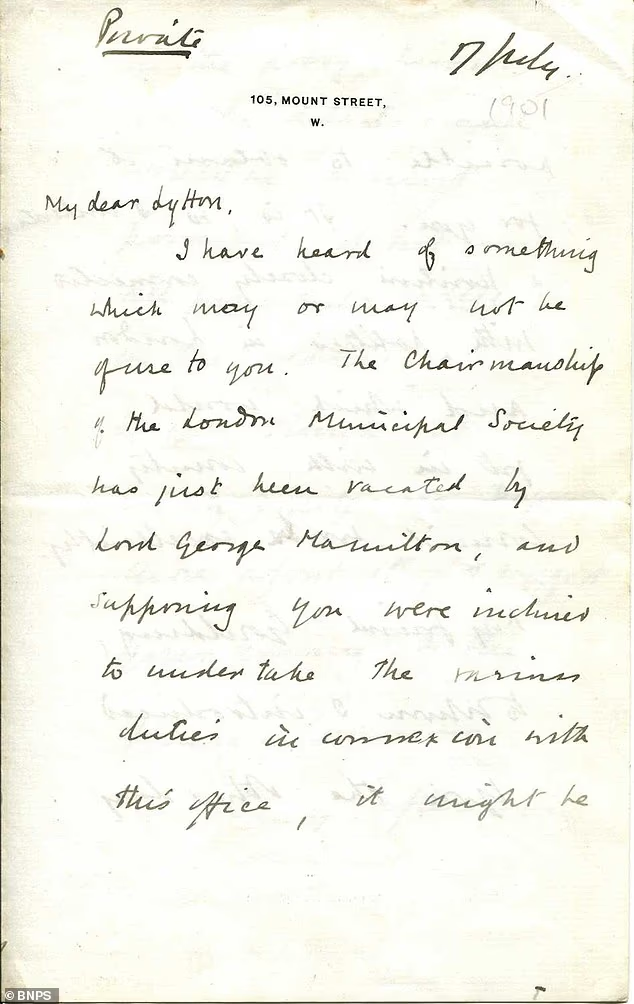 Private
7 July.
105, MOUNT STREET,
W.
1901
My dear Lytton,
I have heard of something
which may or may not be
of use to you. The Chairmanship
of the London Municipal Society
has just been vacated by
Lord George Hamilton, and
supposing you were inclined
to undertake the various
duties in connexion with
this office, it might be
© BNPS